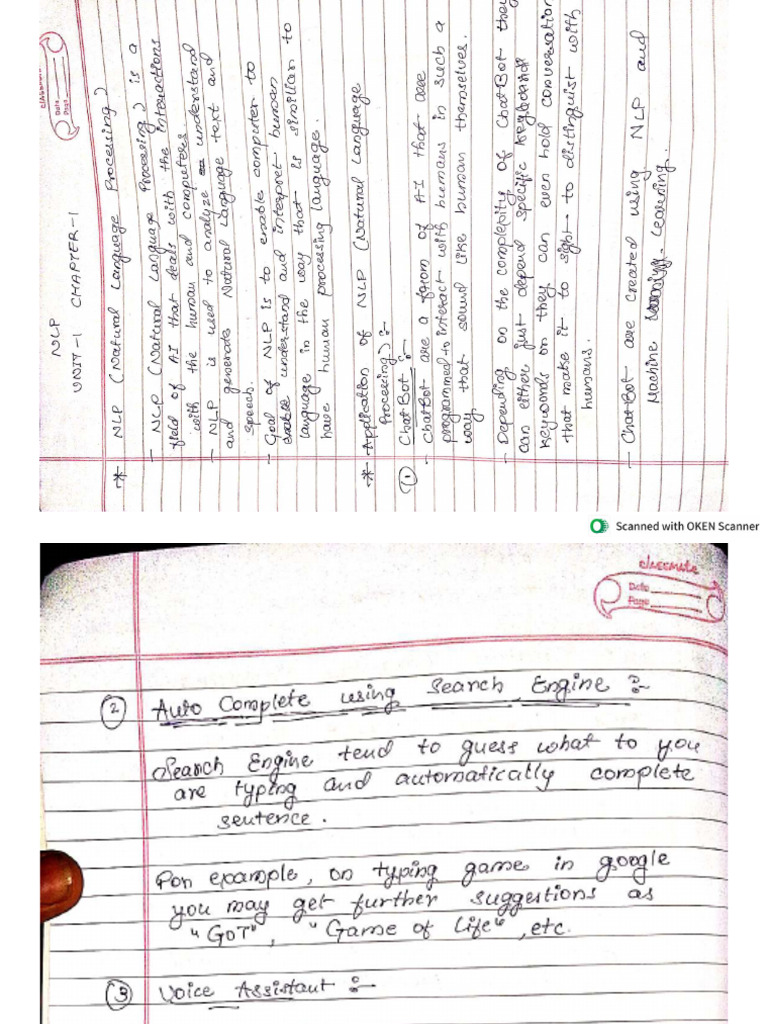 classmate
Date
Page
NLP
UNIT-1 CHAPTER-1
* NLP (Natural Language Processing)
- NLP (Natural Language Processing) is a
yield of AI that deals with the interactions
with the human and computers
- NLP is used to analyze understand
and generate Natural Language text and
speech.
- Goal of NLP is to enable computer to
understand and interpret human
language in the way that is similiar to
have human processing language.
* Application of NLP (Natural Language
Processing) :-
① ChatBot :-
- ChatBot are a form of AI that are
programmed to interact with humans in such a
way that sound like human themselves.
- Depending on the complexity of ChatBot they
can either just depend specific keyboard
keywords on they can even hold conversation
that make it to sight to distinguist with
humans.
- ChatBot are created using NLP and
Machine Learning.
Scanned with OKEN Scanner
classmate
Date
Page
② Auto Complete using Search Engine :-
Search Engine tend to guess what to you
are typing and automatically complete
sentence.
For example, on typing game in google
you may get further suggestions as
"GoT", "Game of Life", etc.
③ Voice Assistant :-